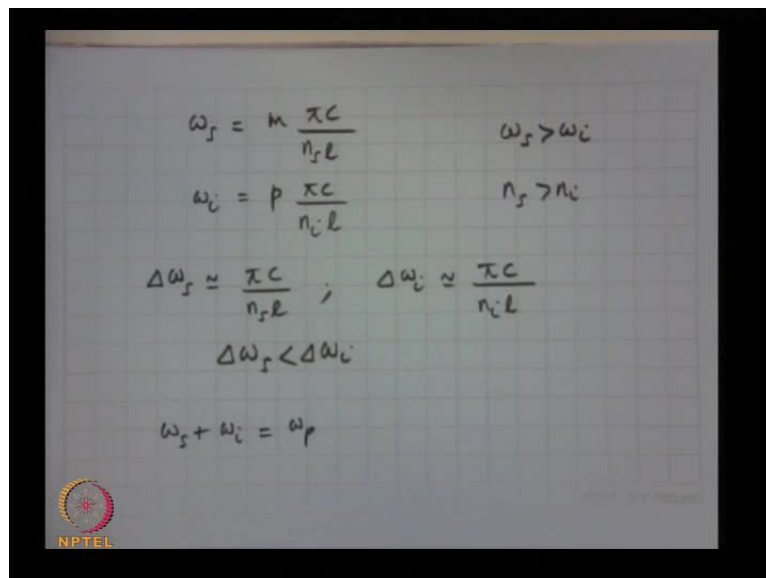 ω_s = m πc / n_s l
ω_s > ω_i
ω_i = p πc / n_i l
n_s > n_i
Δω_s ≃ πc / n_s l ; Δω_i ≃ πc / n_i l
Δω_s < Δω_i
ω_s + ω_i = ω_p
NPTEL